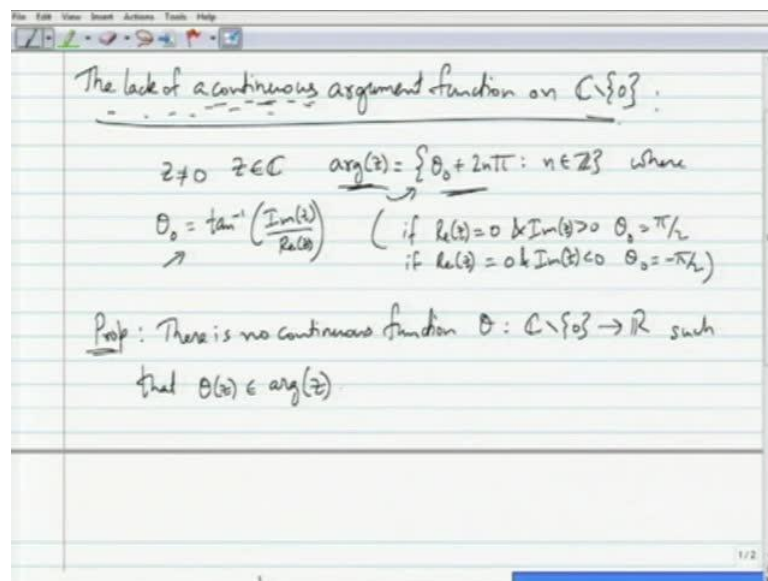 File Edit View Insert Actions Tools Help
The lack of a continuous argument function on ℂ\{0} :
z≠0 z∈ℂ arg(z) = {θ₀ + 2nπ : n∈ℤ} where
θ₀ = tan⁻¹(Im(z)/Re(z)) (if Re(z)=0 & Im(z)>0 θ₀ = π/2
if Re(z)=0 & Im(z)<0 θ₀ = -π/2)
Prop : There is no continuous function θ : ℂ\{0} → ℝ such
that θ(z) ∈ arg(z)
1/2